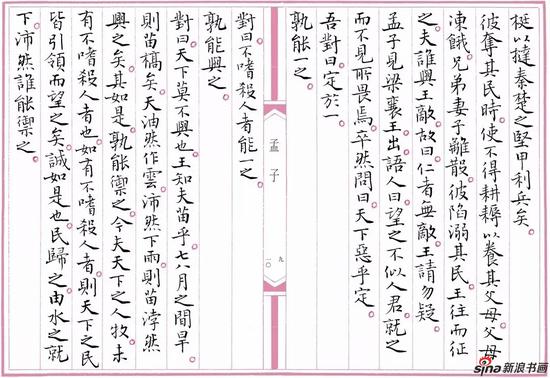 梃以撻秦楚之堅甲利兵矣。
彼奪其民時。使不得耕耨以養其父母。父母
凍餓。兄弟妻子離散。彼陷溺其民。王往而征
之。夫誰與王敵。故曰。仁者無敵。王請勿疑。
孟子見梁襄王。出語人曰。望之不似人君。就之
而不見所畏焉。卒然問曰。天下惡乎定。
吾對曰。定於一。
孰能一之。
孟子
九
一〇
對曰。不嗜殺人者能一之。
孰能與之。
對曰。天下莫不與也。王知夫苗乎。七八月之間旱。
則苗槁矣。天油然作雲。沛然下雨。則苗浡然
興之矣。其如是。孰能禦之。今夫天下之人牧。未
有不嗜殺人者也。如有不嗜殺人者。則天下之民
皆引領而望之矣。誠如是也。民歸之。由水之就
下。沛然誰能禦之。
sina新浪书画